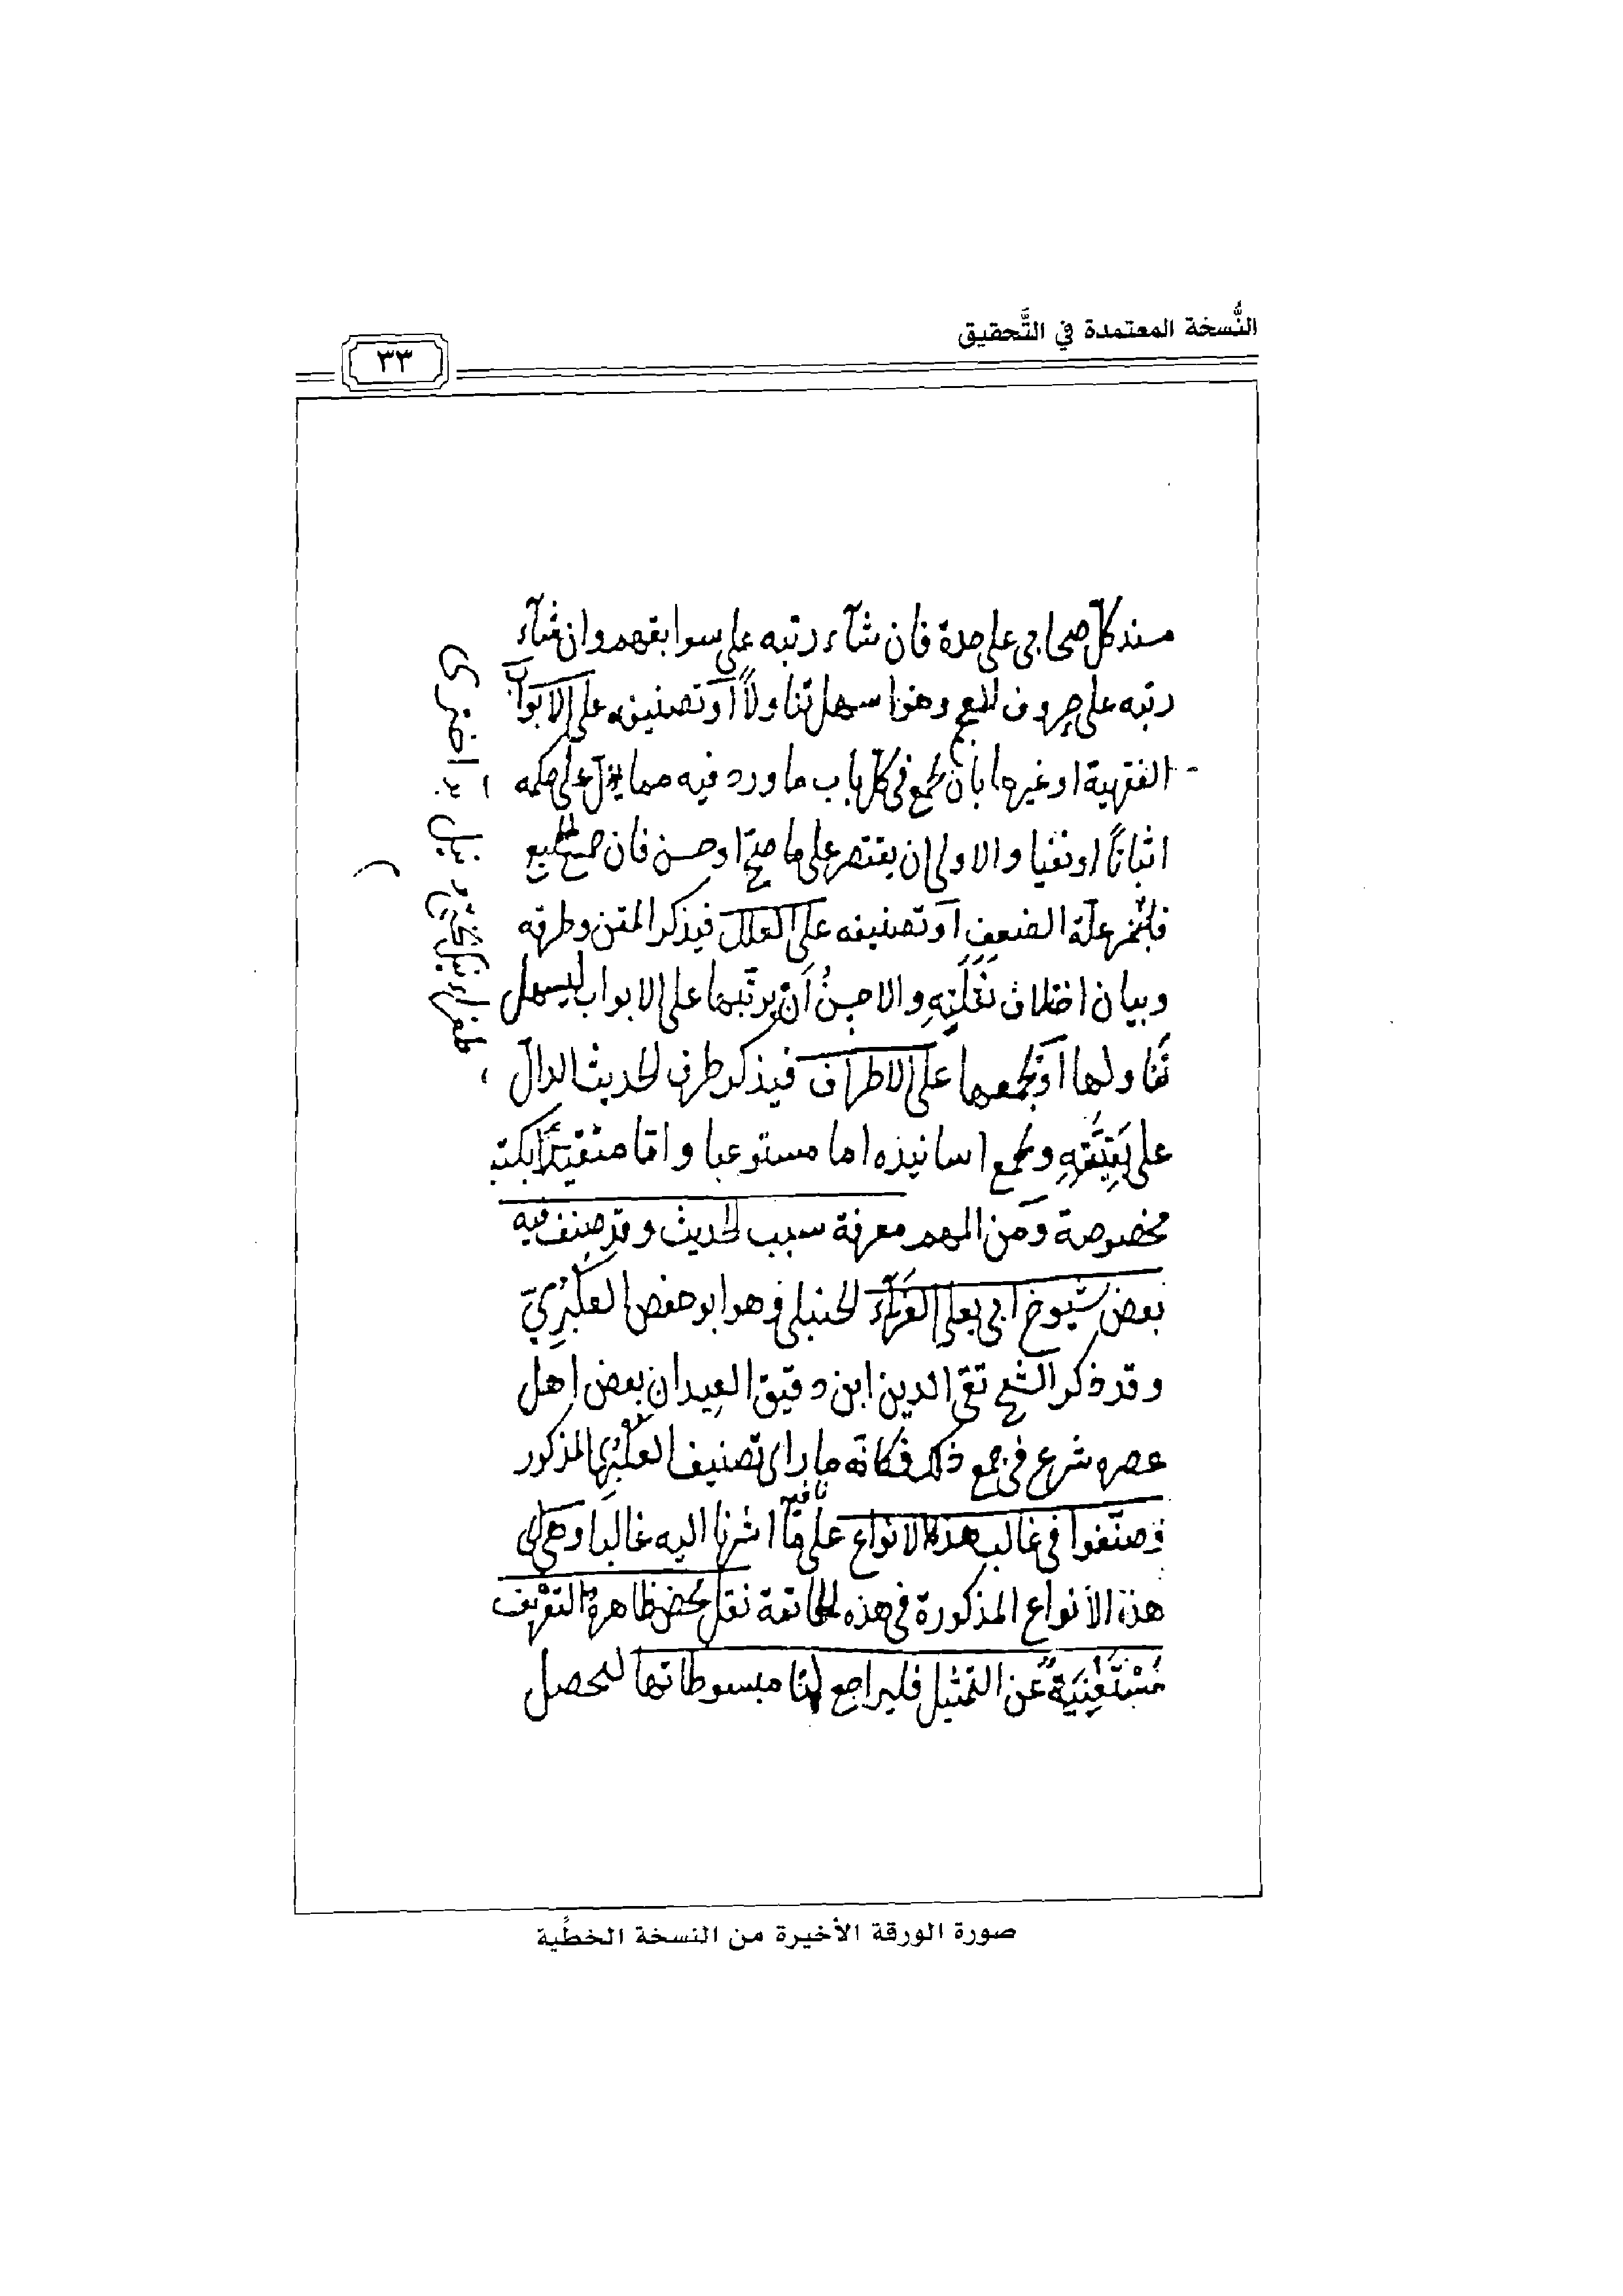 النُّسخة المعتمدة في التَّحقيق
٣٣
مسند كلّ صحابي على حدة فان شآء رتبه على سوابقهم وان شآء
رتبه على حروف المعجم وهذا سهل تناولاً أو تصنيفه على الابواب
الفقهية او غيرها بان يجمع في كلّ باب ما ورد فيه مما يدل على حكمه
اثباتاً او نفيا والاولى ان يقتصر على ما صحّ او حسن فان جمع الجميع
فليبين علة الضعف او تصنيفه على العلل فيذكر المتن وطرقه
وبيان اختلاف نَقَلَتِهِ والاحسنُ أن يرتّبها على الابواب ليسهل
تناولها أو يجمعها على الاطراف فيذكر طرف الحديث الدالّ
على بَقِيَّتِهِ ويجمع اسانيده اما مستوعبا وامّا متقيّدًا بكتب
مخصوصة ومن المهم معرفة سبب الحديث وقد صنف فيه
بعض شيوخ ابي يعلى الفرآء الحنبلي وهو ابو حفص العكبريّ
وقد ذكر الشيخ تقي الدين ابن دقيق العيد ان بعض اهل
عصره شرع في جمع ذلك فكانّه ما راى تصنيف العكبري المذكور
وصنّفوا في غالب هذه الانواع على ما اشرنا اليه غالبا وهي اى
هذه الأنواع المذكورة في هذه الخاتمة نقل محض ظاهرة التعريف
مُسْتَغْنِيَةٌ عن التمثيل فليراجع لها مبسوطاتها ليحصل
صورة الورقة الأخيرة من النسخة الخطِّية